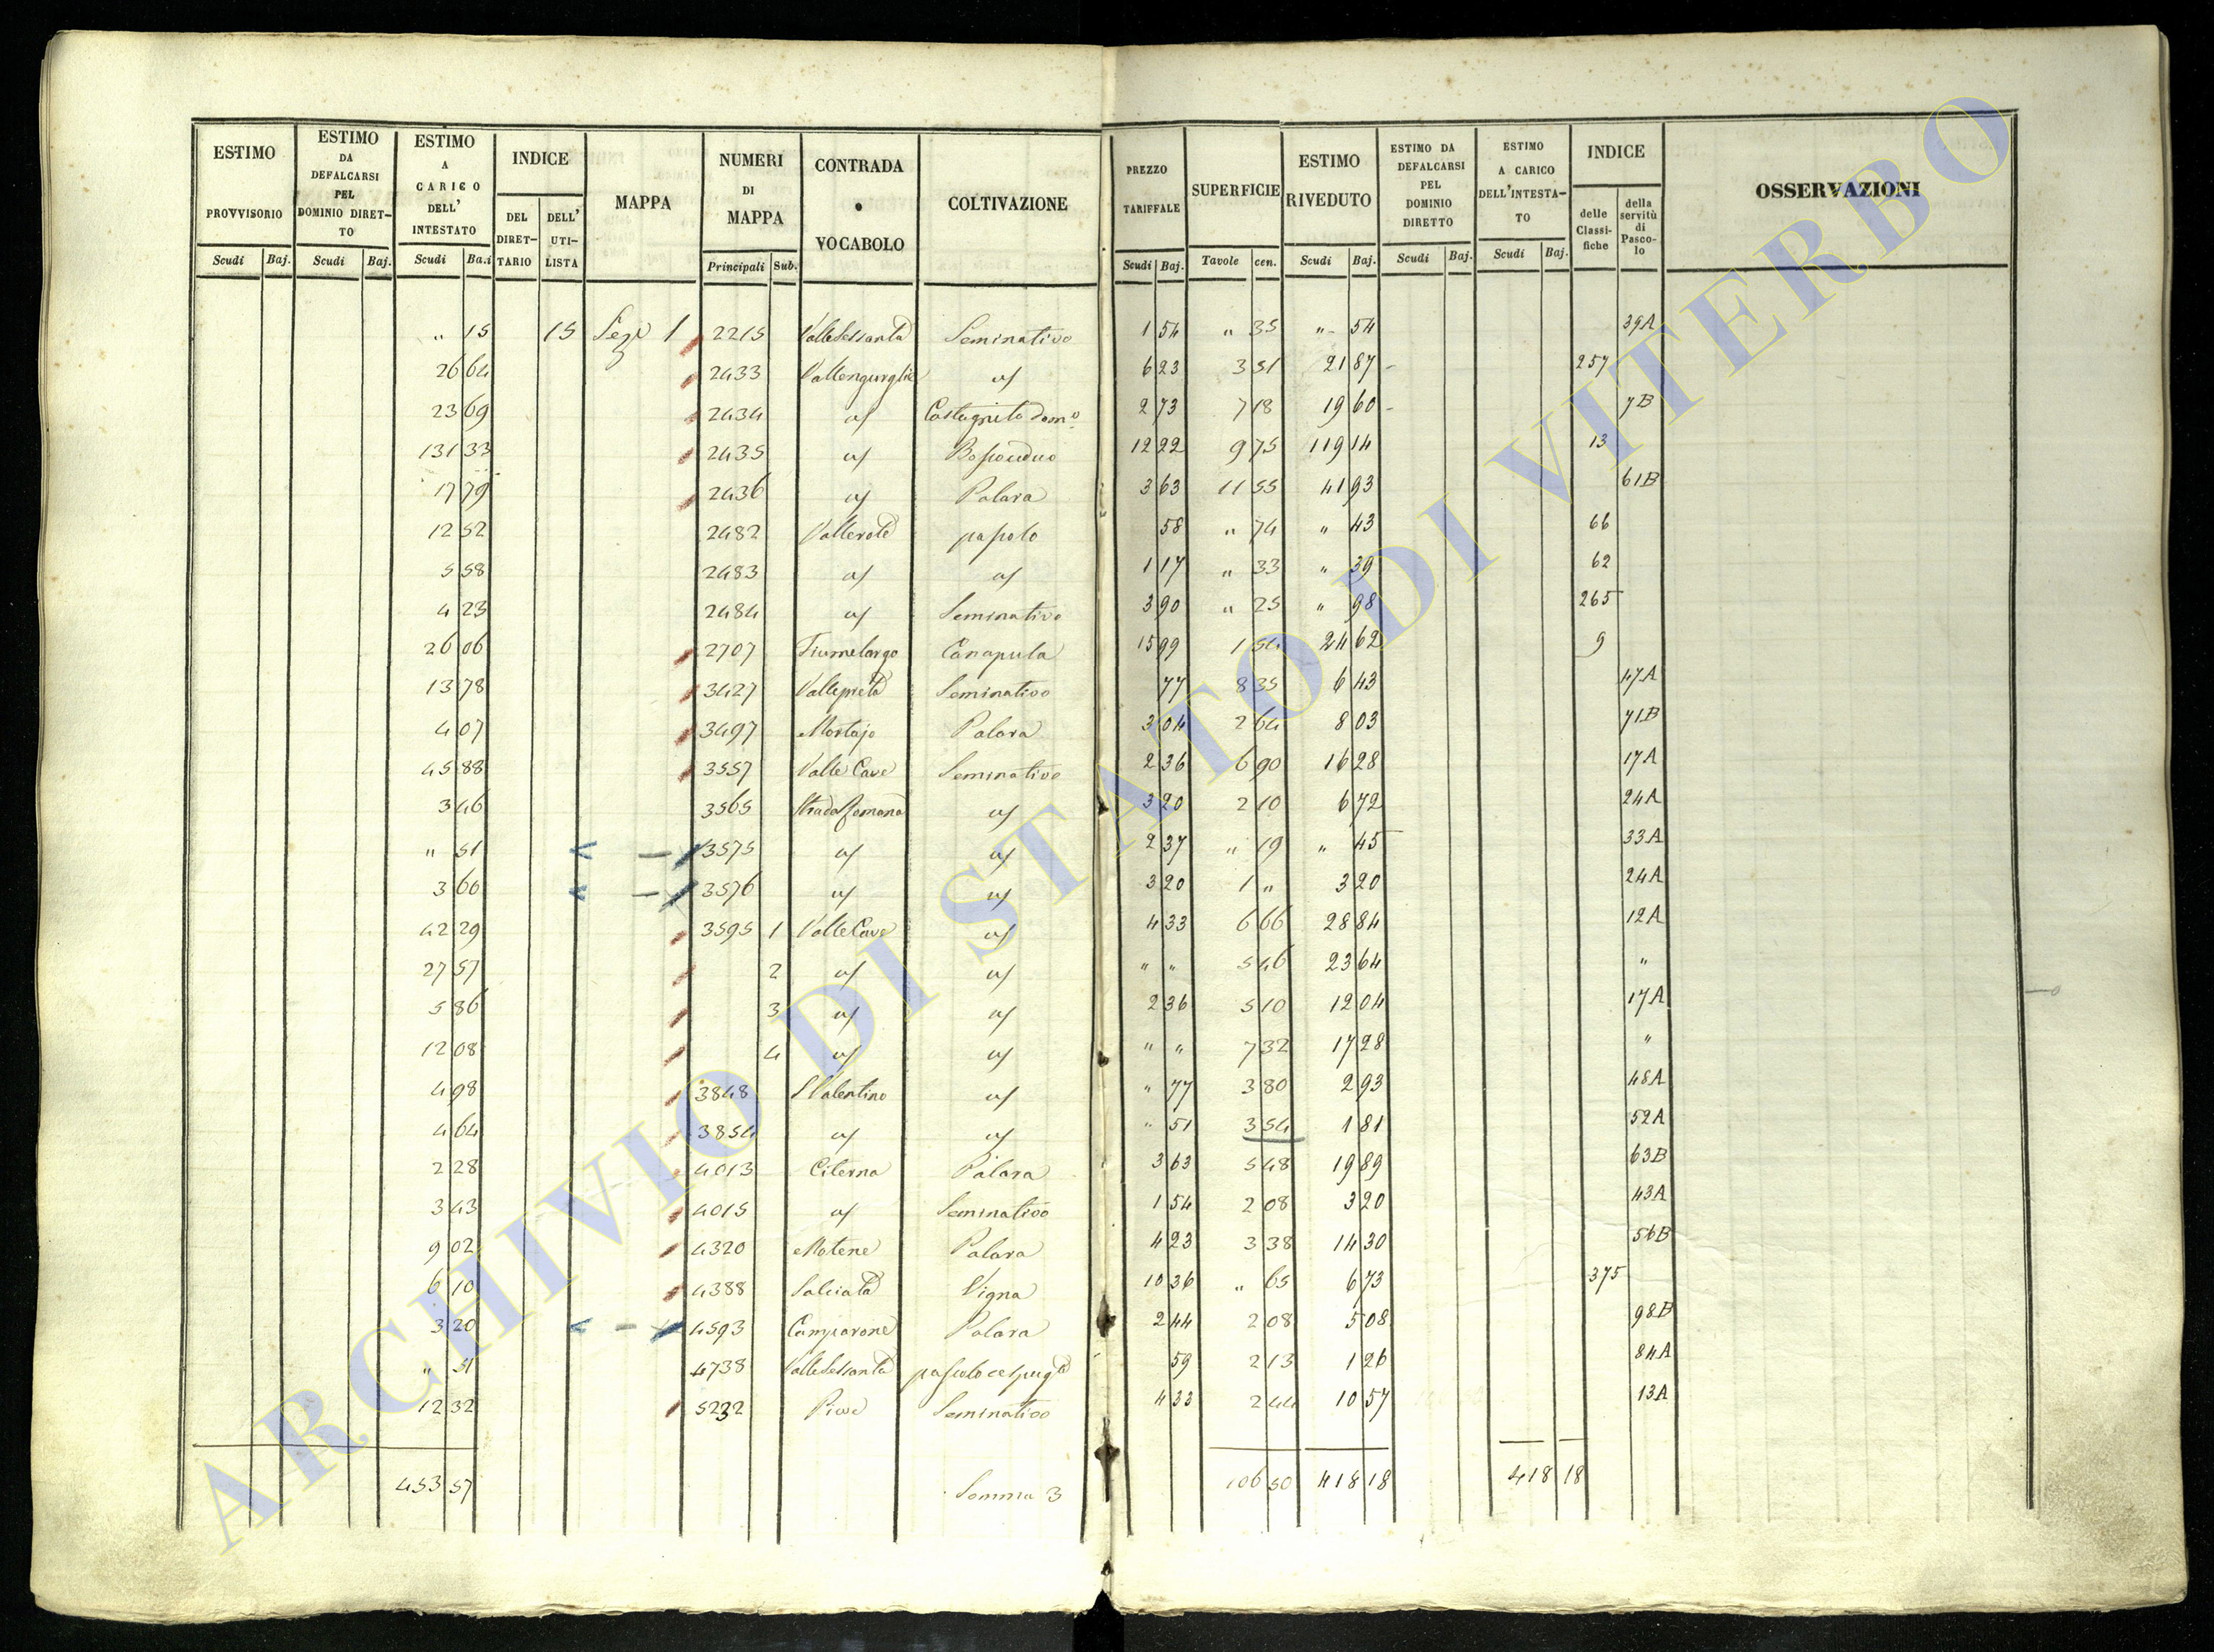 ESTIMO PROVVISORIO Scudi Baj.
ESTIMO DA DEFALCARSI PEL DOMINIO DIRETTO Scudi Baj.
ESTIMO A CARICO DELL' INTESTATO Scudi Ba.i
INDICE DEL DIRETTARIO DELL' UTILISTA
MAPPA
NUMERI DI MAPPA Principali Sub.
CONTRADA o VOCABOLO
COLTIVAZIONE
PREZZO TARIFFALE Scudi Baj.
SUPERFICIE Tavole cen.
ESTIMO RIVEDUTO Scudi Baj.
ESTIMO DA DEFALCARSI PEL DOMINIO DIRETTO Scudi Baj.
ESTIMO A CARICO DELL'INTESTATO Scudi Baj.
INDICE delle Classifiche della servitù di Pascolo
OSSERVAZIONI
" 15 15 1 2215 Seminativo 1 54 " 35 " 54 39A
26 64 2433 6 23 3 51 21 87 257
23 69 2434 2 73 7 18 19 60 7B
131 33 2435 12 22 9 75 119 14 13
17 79 2436 Palara 3 63 11 55 41 93 61B
12 52 2482 pascolo 58 " 74 " 43 66
5 58 2483 1 17 " 33 " 39 62
4 23 2484 Seminativo 3 90 " 25 " 98 265
26 06 2707 Fiumelargo Canapula 15 99 1 54 24 62 9
13 78 3427 Seminativo 77 8 35 6 43 47A
4 07 3497 Palara 3 04 2 64 8 03 71B
45 88 3557 Valle Cave Seminativo 2 36 6 90 16 28 17A
3 46 3565 Strada Romana 3 20 2 10 6 72 24A
" 51 3575 2 37 " 19 " 45 33A
3 66 3576 3 20 1 " 3 20 24A
42 29 3595 1 Valle Cave 4 33 6 66 28 84 12A
27 57 2 " " 5 46 23 64 "
5 86 3 2 36 5 10 12 04 17A
12 08 4 " " 7 32 17 28 "
4 98 3848 S Valentino " 77 3 80 2 93 48A
4 64 3854 " 51 3 54 1 81 52A
2 28 4013 Citerna Palara 3 63 5 48 19 89 63B
3 43 4015 Seminativo 1 54 2 08 3 20 43A
9 02 4320 Palara 4 23 3 38 14 30 56B
6 10 4388 Vigna 10 36 " 65 6 73 375
3 20 4593 Camparone Palara 2 44 2 08 5 08 98B
" 51 4738 59 2 13 1 26 84A
12 32 5232 Seminativo 4 33 2 44 10 57 13A
453 57 Somma 3 106 50 418 18 418 18
ARCHIVIO DI STATO DI VITERBO